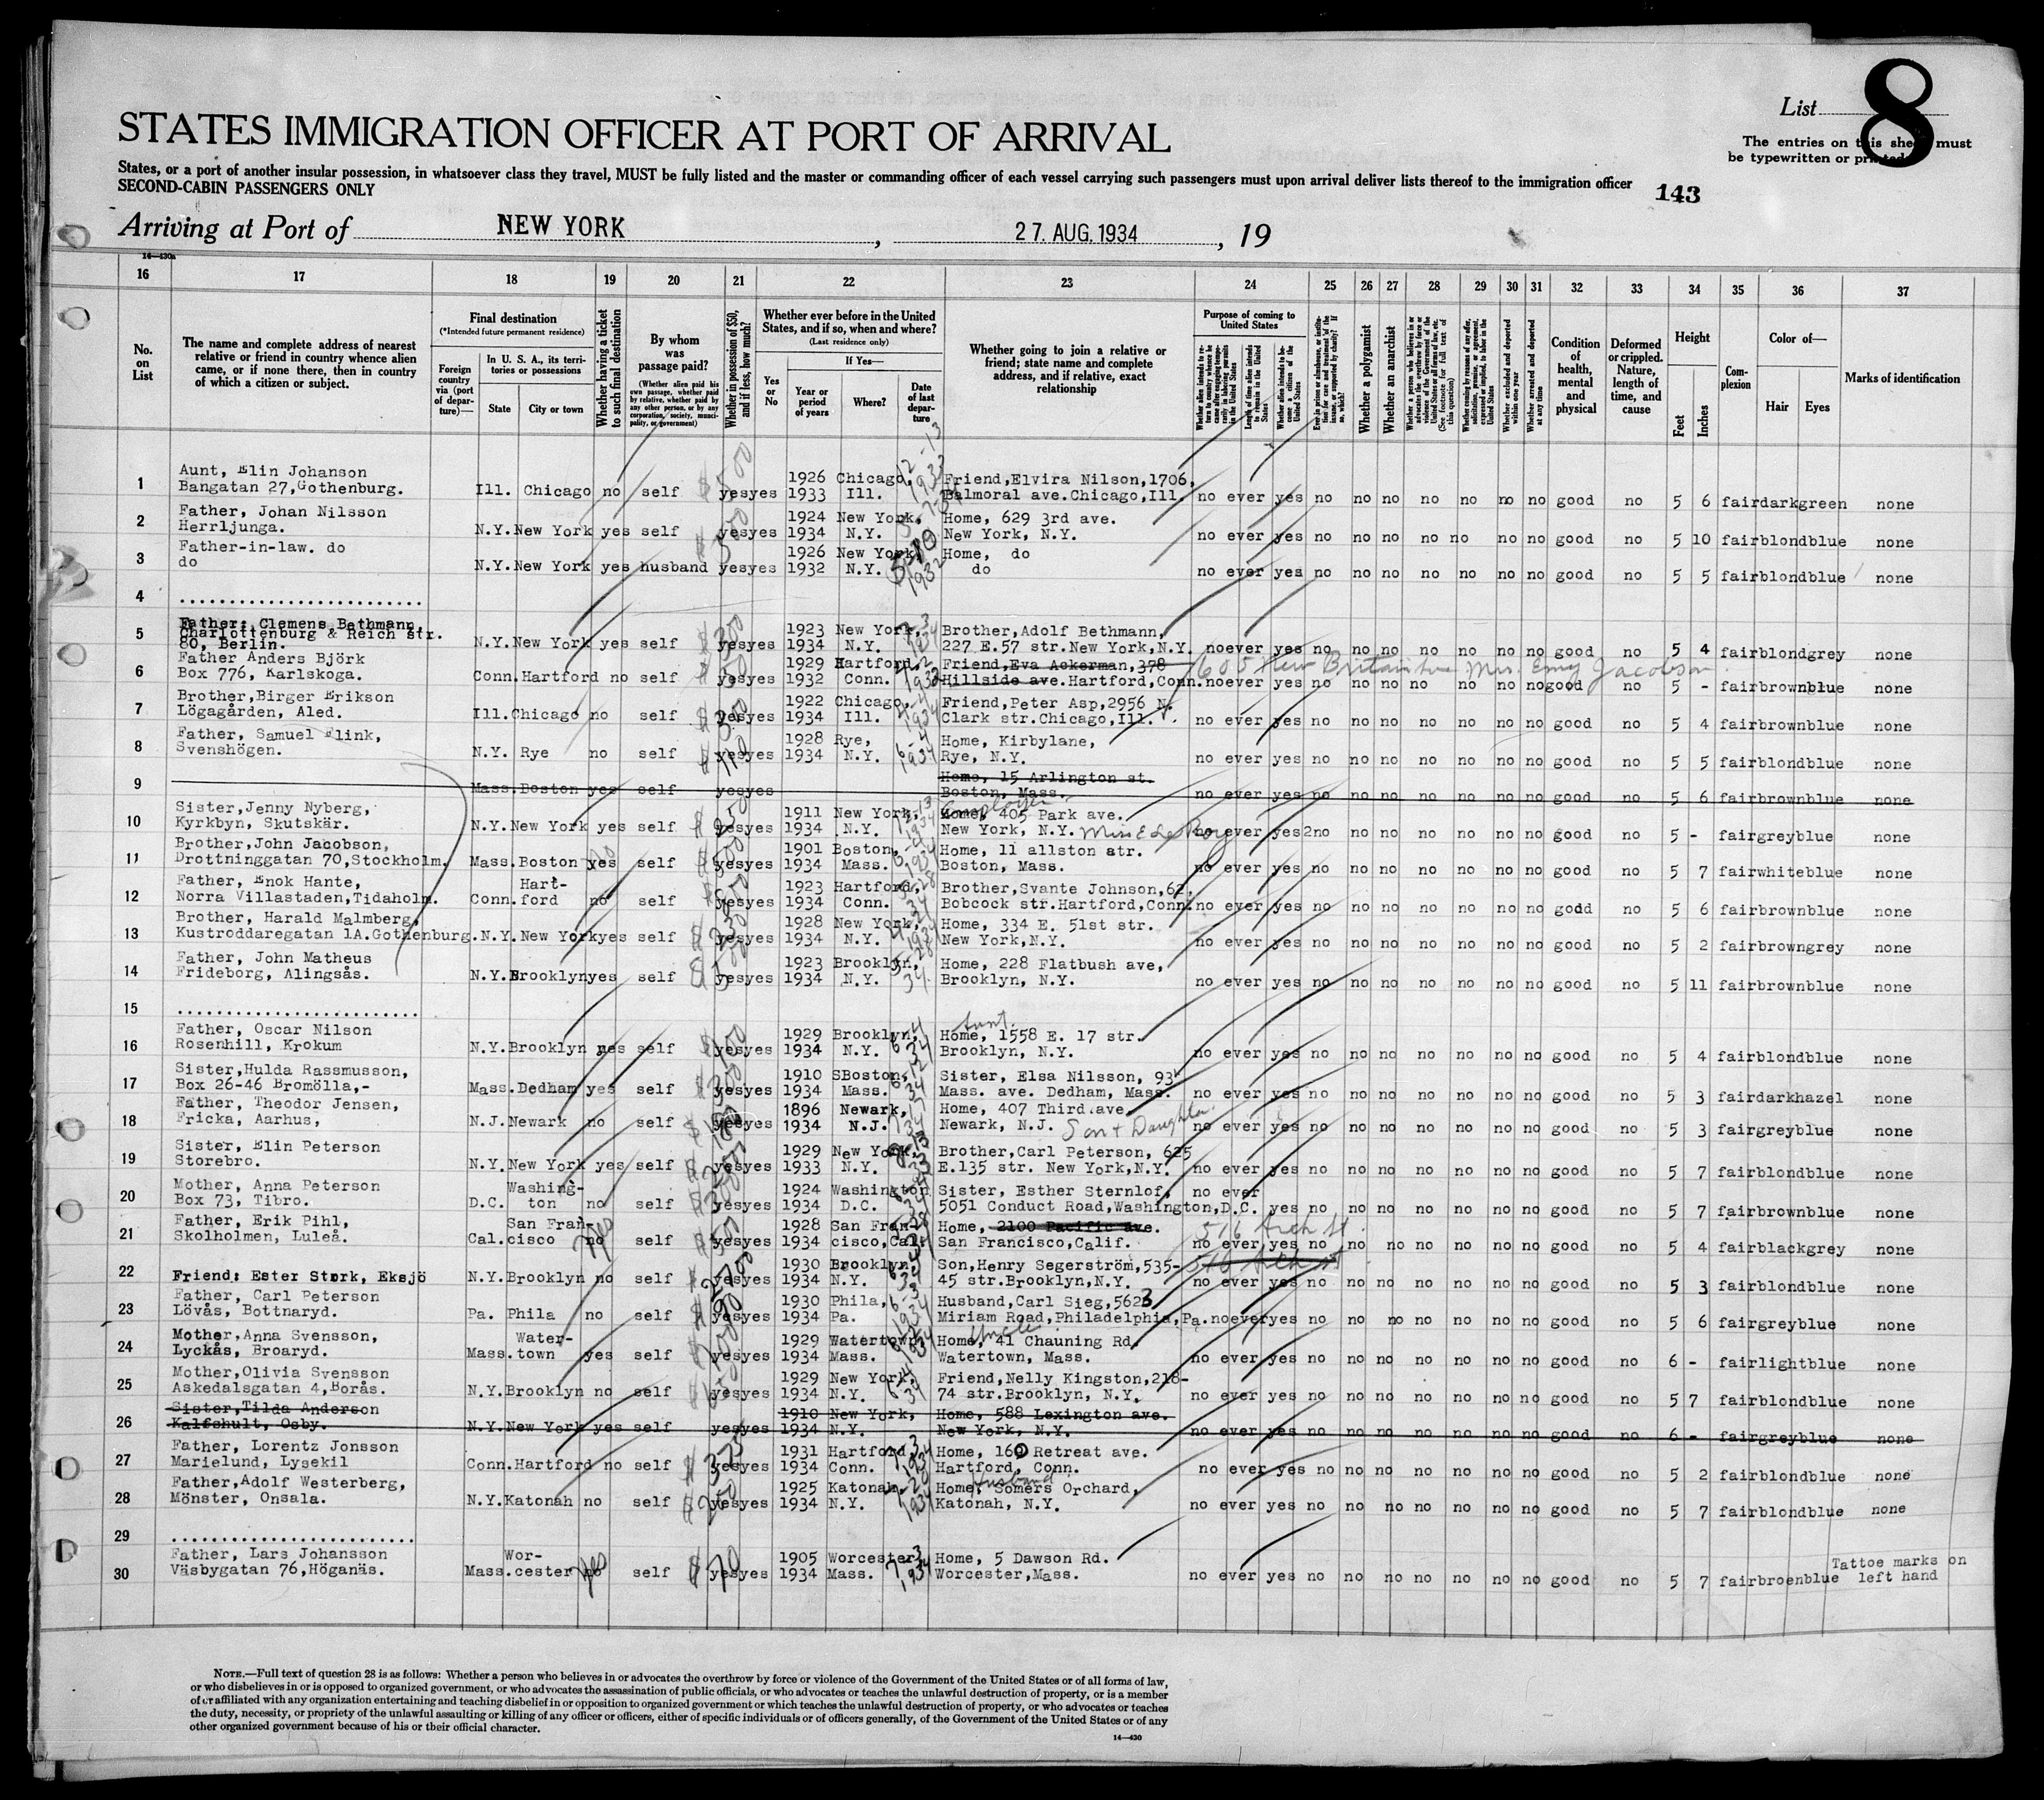 List 8
The entries on this sheet must
be typewritten or printed
STATES IMMIGRATION OFFICER AT PORT OF ARRIVAL
States, or a port of another insular possession, in whatsoever class they travel, MUST be fully listed and the master or commanding officer of each vessel carrying such passengers must upon arrival deliver lists thereof to the immigration officer
SECOND-CABIN PASSENGERS ONLY
143
Arriving at Port of NEW YORK, 27. AUG. 1934, 19
14—430a
16 17 18 19 20 21 22 23 24 25 26 27 28 29 30 31 32 33 34 35 36 37
No. on List
The name and complete address of nearest relative or friend in country whence alien came, or if none there, then in country of which a citizen or subject.
Final destination
(*Intended future permanent residence)
Foreign country via (port of departure)—
In U. S. A., its territories or possessions
State City or town
Whether having a ticket to such final destination
By whom was passage paid?
(Whether alien paid his own passage, whether paid by relative, whether paid by any other person, or by any corporation, society, municipality, or government)
Whether in possession of $50, and if less, how much?
Whether ever before in the United States, and if so, when and where?
(Last residence only)
If Yes—
Yes or No
Year or period of years
Where?
Date of last departure
Whether going to join a relative or friend; state name and complete address, and if relative, exact relationship
Purpose of coming to United States
Whether a polygamist
Whether an anarchist
Whether excluded and deported within one year
Whether arrested and deported at any time
Condition of health, mental and physical
Deformed or crippled. Nature, length of time, and cause
Height
Feet Inches
Complexion
Color of—
Hair Eyes
Marks of identification
1 Aunt, Elin Johanson 1926 Chicago, Friend,Elvira Nilson,1706,
Bangatan 27,Gothenburg. Ill. Chicago no self $500 yes yes 1933 Ill. Balmoral ave.Chicago,Ill. no ever yes no no no no no no no good no 5 6 fair dark green none
2 Father, Johan Nilsson 1924 New York, Home, 629 3rd ave.
Herrljunga. N.Y. New York yes self yes yes 1934 N.Y. New York, N.Y. no ever yes no no no no no no no good no 5 10 fair blond blue none
3 Father-in-law. do 1926 New York Home, do
do N.Y. New York yes husband yes yes 1932 N.Y. do no ever yes no no no no no no no good no 5 5 fair blond blue none
4 ........................
5 Father: Clemens Bethmann 1923 New York, Brother,Adolf Bethmann,
Charlottenburg & Reich str.
80, Berlin. N.Y. New York yes self $200 yes yes 1934 N.Y. 227 E.57 str.New York,N.Y. no ever yes no no no no no no no good no 5 4 fair blond grey none
6 Father Anders Björk 1929 Hartford, Friend,Eva Ackerman,378 605 New Britain Ave Mrs. Emy Jacobson
Box 776, Karlskoga. Conn. Hartford no self yes yes 1932 Conn. Hillside ave.Hartford,Conn. no ever yes no no no no no no no good no 5 - fair brown blue none
7 Brother,Birger Erikson 1922 Chicago, Friend,Peter Asp,2956 N.
Lögagården, Aled. Ill. Chicago no self yes yes 1934 Ill. Clark str.Chicago,Ill. no ever yes no no no no no no no good no 5 4 fair brown blue none
8 Father, Samuel Flink, 1928 Rye, Home, Kirbylane,
Svenshögen. N.Y. Rye no self yes yes 1934 N.Y. Rye, N.Y. no ever yes no no no no no no no good no 5 5 fair blond blue none
9 Home, 15 Arlington st.
Mass. Boston yes self yes yes Boston, Mass. no ever yes no no no no no no no good no 5 6 fair brown blue none
10 Sister,Jenny Nyberg, 1911 New York, Employer Home, 405 Park ave.
Kyrkbyn, Skutskär. N.Y. New York yes self $250 yes yes 1934 N.Y. New York, N.Y. no ever yes 2 no no no no no no no good no 5 - fair grey blue none
11 Brother,John Jacobson, 1901 Boston, Home, 11 allston str.
Drottninggatan 70,Stockholm. Mass. Boston yes self yes yes 1934 Mass. Boston, Mass. no ever yes no no no no no no no good no 5 7 fair white blue none
12 Father, Enok Hante, Hart- 1923 Hartford, Brother,Svante Johnson,62,
Norra Villastaden,Tidaholm. Conn. ford no self yes yes 1934 Conn. Bobcock str.Hartford,Conn. no ever yes no no no no no no no godd no 5 6 fair brown blue none
13 Brother, Harald Malmberg, 1928 New York, Home, 334 E. 51st str.
Kustroddaregatan 1A.Gothenburg. N.Y. New York yes self yes yes 1934 N.Y. New York,N.Y. no ever yes no no no no no no no good no 5 2 fair brown grey none
14 Father, John Matheus 1923 Brooklyn, Home, 228 Flatbush ave,
Frideborg, Alingsås. N.Y. Brooklyn yes self yes yes 1934 N.Y. Brooklyn, N.Y. no ever yes no no no no no no no good no 5 11 fair brown blue none
15 ........................
16 Father, Oscar Nilson 1929 Brooklyn, Aunt. Home, 1558 E. 17 str.
Rosenhill, Krokum N.Y. Brooklyn yes self yes yes 1934 N.Y. Brooklyn, N.Y. no ever yes no no no no no no no good no 5 4 fair blond blue none
17 Sister,Hulda Rassmusson, 1910 SBoston, Sister, Elsa Nilsson, 93
Box 26-46 Bromölla,- Mass. Dedham yes self $300 yes yes 1934 Mass. Mass. ave. Dedham, Mass. no ever yes no no no no no no no good no 5 3 fair dark hazel none
18 Father, Theodor Jensen, 1896 Newark, Home, 407 Third.ave.
Fricka, Aarhus, N.J. Newark no self yes yes 1934 N.J. Newark, N.J. Son + Daughter no ever yes no no no no no no no good no 5 3 fair grey blue none
19 Sister, Elin Peterson 1929 New York, Brother,Carl Peterson, 625
Storebro. N.Y. New York yes self yes yes 1933 N.Y. E.135 str. New York,N.Y. no ever yes no no no no no no no good no 5 7 fair blond blue none
20 Mother, Anna Peterson Washing- 1924 Washington Sister, Esther Sternlof, no ever
Box 73, Tibro. D.C. ton no self yes yes 1934 D.C. 5051 Conduct Road,Washington,D.C. yes no no no no no no no good no 5 7 fair brown blue none
21 Father, Erik Pihl, San Fran- 1928 San Fran- Home, 2100 Pacific ave. 516 Arch St.
Skolholmen, Luleå. Cal. cisco no yes self yes yes 1934 cisco,Cal. San Francisco,Calif. no ever yes no no no no no no no good no 5 4 fair black grey none
22 1930 Brooklyn, Son,Henry Segerström,535- 516 Arch st
Friend: Ester Stork, Eksjö N.Y. Brooklyn no self yes yes 1934 N.Y. 45 str.Brooklyn,N.Y. no ever yes no no no no no no no good no 5 3 fair blond blue none
23 Father, Carl Peterson 1930 Phila, Husband,Carl Sieg,5623
Lövås, Bottnaryd. Pa. Phila no self $90 yes yes 1934 Pa. Miriam Road,Philadelphia,Pa. no ever yes no no no no no no no good no 5 6 fair grey blue none
24 Mother,Anna Svensson, Water- 1929 Watertown Uncle Home, 41 Chauning Rd,
Lyckås, Broaryd. Mass. town yes self yes yes 1934 Mass. Watertown, Mass. no ever yes no no no no no no no good no 6 - fair light blue none
25 Mother,Olivia Svensson 1929 New York, Friend,Nelly Kingston,218-
Askedalsgatan 4,Borås. N.Y. Brooklyn no self yes yes 1934 N.Y. 74 str.Brooklyn, N.Y. no ever yes no no no no no no no good no 5 7 fair blond blue none
26 Sister,Tilda Anderson 1910 New York, Home, 588 Lexington ave.
Kalfshult, Osby. N.Y. New York yes self yes yes 1934 N.Y. New York, N.Y. no ever yes no no no no no no no good no 6 - fair grey blue none
27 Father, Lorentz Jonsson 1931 Hartford, Home, 160 Retreat ave.
Marielund, Lysekil Conn. Hartford no self $375 yes yes 1934 Conn. Hartford, Conn. no ever yes no no no no no no no good no 5 2 fair blond blue none
28 Father,Adolf Westerberg, 1925 Katonah, Husband Home, Somers Orchard,
Mönster, Onsala. N.Y. Katonah no self $200 yes yes 1934 N.Y. Katonah, N.Y. no ever yes no no no no no no no good no 5 7 fair blond blue none
29 ........................
30 Father, Lars Johansson Wor- 1905 Worcester Home, 5 Dawson Rd. Tattoe marks on
Väsbygatan 76,Höganäs. Mass. cester no yes self $70 yes yes 1934 Mass. Worcester,Mass. no ever yes no no no no no no no good no 5 7 fair broen blue left hand
NOTE.—Full text of question 28 is as follows: Whether a person who believes in or advocates the overthrow by force or violence of the Government of the United States or of all forms of law,
or who disbelieves in or is opposed to organized government, or who advocates the assassination of public officials, or who advocates or teaches the unlawful destruction of property, or is a member
of or affiliated with any organization entertaining and teaching disbelief in or opposition to organized government or which teaches the unlawful destruction of property, or who advocates or teaches
the duty, necessity, or propriety of the unlawful assaulting or killing of any officer or officers, either of specific individuals or of officers generally, of the Government of the United States or of any
other organized government because of his or their official character.
14—430